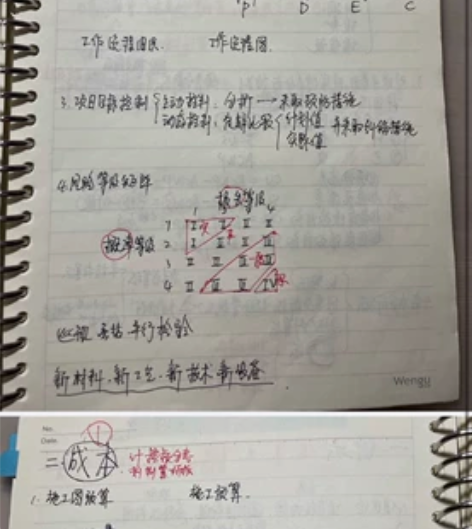 P D E C
工作流程图 工作流程图.
3. 项目目标控制 主动控制: 分析→采取预防措施
动态控制: 定期比较 计划值 实际值 并采取纠偏措施
4. 风险等级矩阵
损失等级
1 4
概率等级
1 I I II II
2 I II II III
3 II II III III
4 II III III IV
巡视 旁站 平行检验
新材料. 新工艺. 新技术 新设备
Wengu
No.
Date.
二 成本
1. 施工图预算 施工预算.